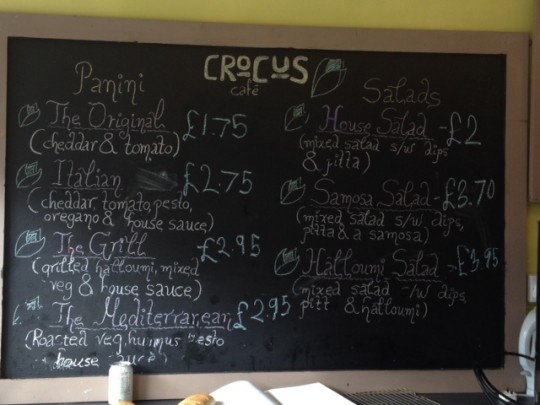 CROCUS
café
Panini
The Original £1.75
(cheddar & tomato)
Italian £2.75
(cheddar, tomato, pesto,
oregano & house sauce)
The Grill -£2.95
(grilled halloumi, mixed
veg & house sauce)
The Mediterranean £2.95
(Roasted veg, hummus pesto
house sauce)
Salads
House Salad -£2
(mixed salad s/w dips
& pitta)
Samosa Salad -£3.70
(mixed salad s/w dips,
pitta & a samosa)
Halloumi Salad -£3.95
(mixed salad s/w dips,
pitt & halloumi)